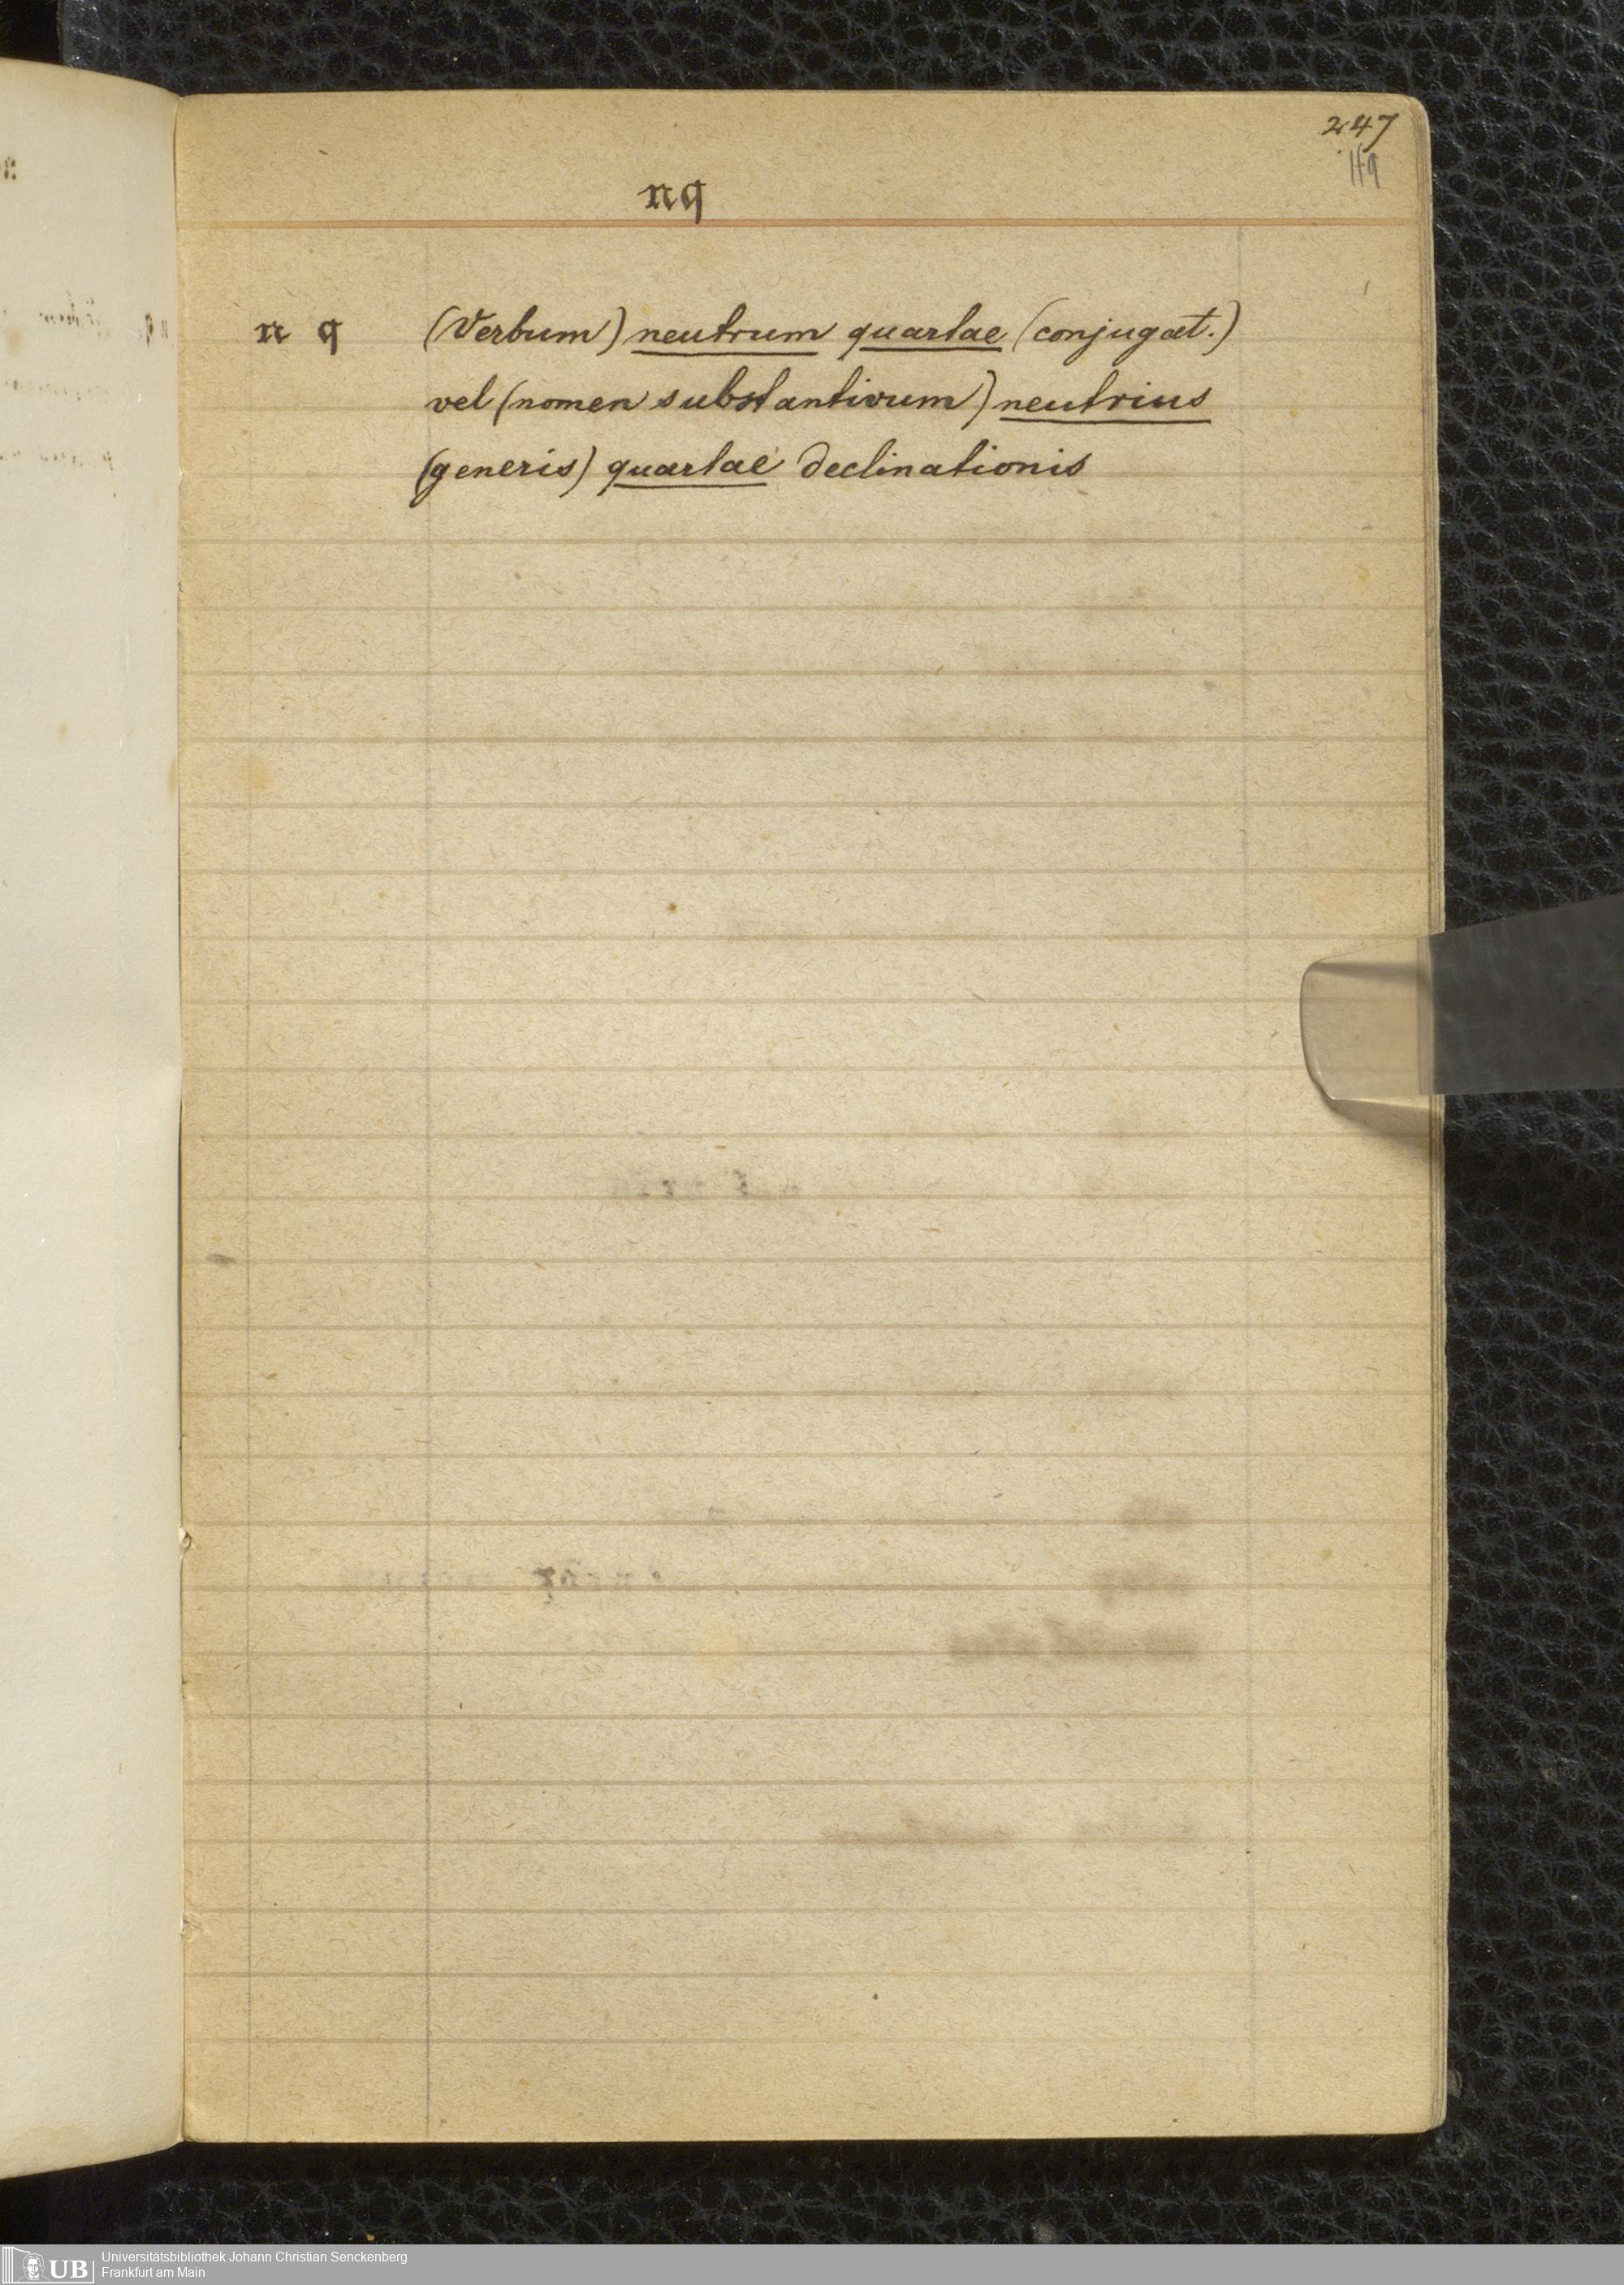 247
119
nq
n q (Verbum) neutrum quartae (conjugat.)
vel (nomen substantivum) neutrius
(generis) quartae declinationis
UB Universitätsbibliothek Johann Christian Senckenberg
Frankfurt am Main